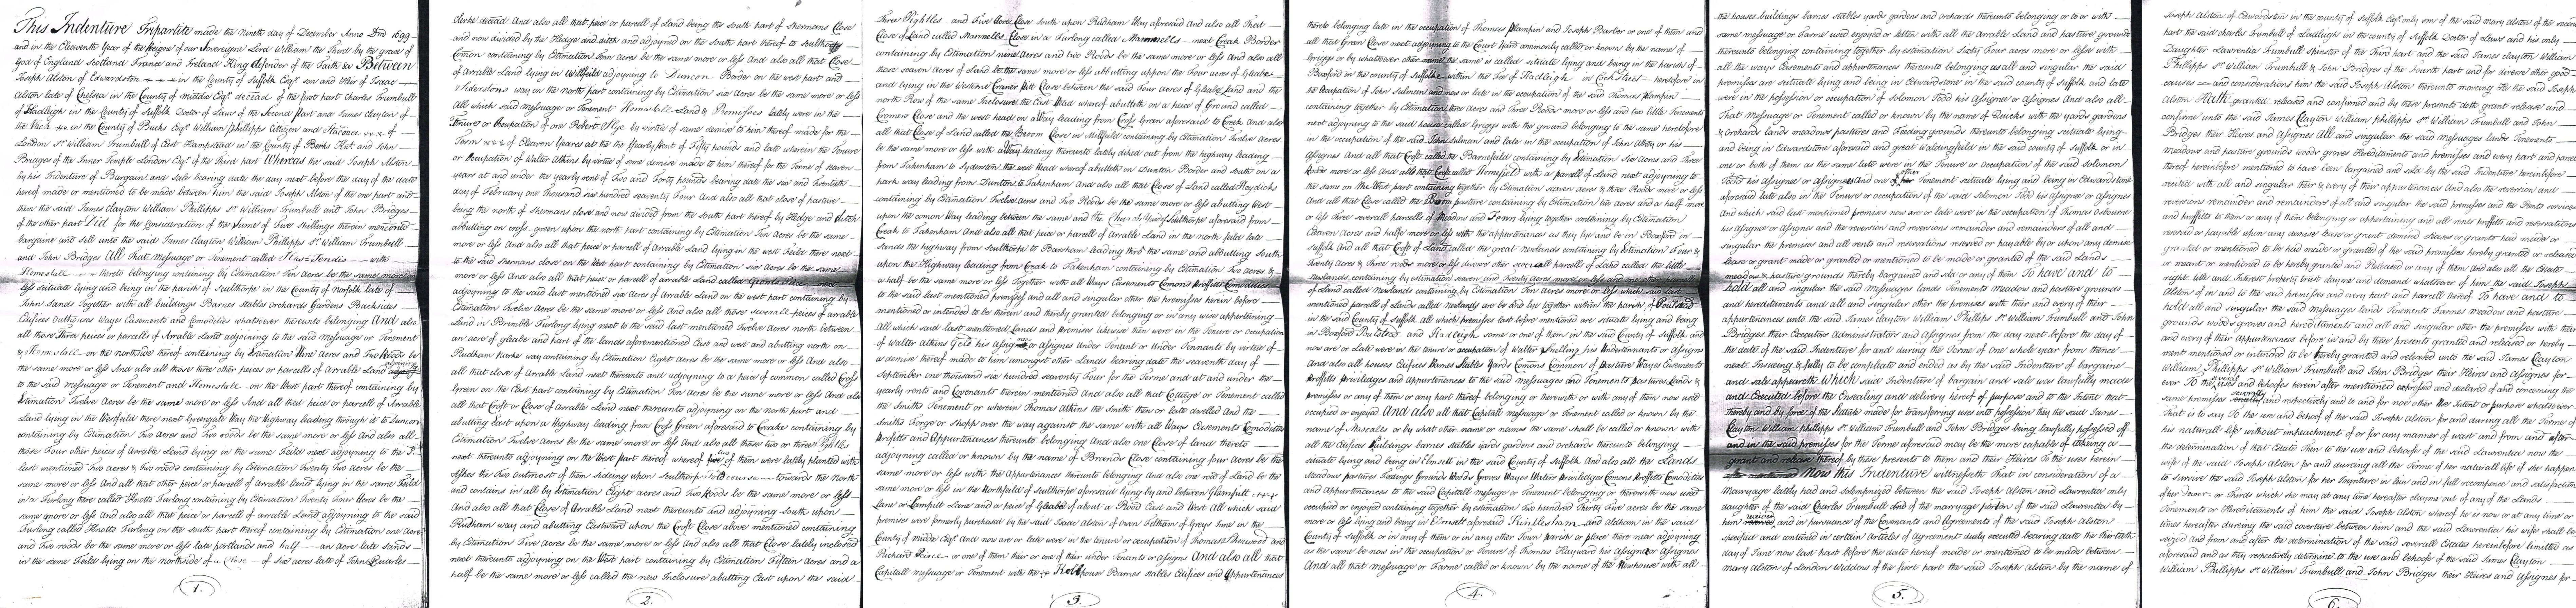 This Indenture Tripartite made the Ninth day of December Anno Dni 1699
and in the Eleaventh Year of the Reigne of our Sovereigne Lord William the Third by the grace of
God of England Scotland France and Ireland King defender of the Faith &c Between
Joseph Alston of Edwardston in the County of Suffolk Esqr. son and Heir of Isaac
Alston late of Chelsea in the County of Middx Esqr. deceased of the first part Charles Trumbull
of Hadleigh in the County of Suffolk Doctor of Laws of the Second Part and James Clayton of
the in the County of Bucks Esqr. William Phillipps Cittizen and of
London Sr. William Trumbull of East Hampstead in the County of Berks Knt and John
Bridges of the Inner Temple London Esqr. of the Third part Whereas the said Joseph Alston
by his Indenture of Bargain and Sale bearing date the day next before the day of the date
hereof made or mentioned to be made between him the said Joseph Alston of the one part and
them the said James Clayton William Phillipps Sr. William Trumbull and John Bridges
of the other part Did for the Consideration of the Summe of Five Shillings therein mentioned
bargain and Sell unto the said James Clayton William Phillipps Sr. William Trumbull
and John Bridges All That Messuage or Tenement called with
Homestall thereto belonging containing by Estimation Ten Acres be the same more or
less scituate lying and being in the parish of Sculthorpe in the County of Norfolk late of
John Sands Together with all buildings Barnes Stables Orchards Gardens Backsides
Edifices Outhouses Wayes Easements and Comodities whatsoever thereunto belonging And also
all those Three peices or parcells of Arrable Land adjoining to the said Messuage or Tenement
& Homestall on the northside thereof containing by Estimation Nine Acres and Two Roods be
the same more or less And also all those three other peices or parcells of Arrable Land
to the said Messuage or Tenement and Homestall on the West part thereof containing by
Estimation Twelve Acres be the same more or less And all that peice or parcell of Arrable
Land lying in the Westfeild there next Grengate Way the Highway leading through it to
containing by Estimation Two acres and Two roods be the same more or less And also all
those Four other peices of Arrable Land lying in the same Feild next adjoyning to the
last mentioned Two acres & two roods containing by Estimation Twenty Two acres be the
same more or less And also all that other peice or parcell of Arrable land lying in the same Feild
in a Furlong there called Knotts Furlong containing by Estimation Twenty Four Acres be the
same more or less And also all that peice or parcell of Arrable Land adjoyning to the said
Furlong called Knotts Furlong on the south part thereof containing by Estimation one acre
and Two roods be the same more or less late portlands and half an Acre late Sands
in the same Feild lying on the northside of a Close of six acres late of John Quarles
1.
Clerke deceased And also all that peice or parcell of Land being the south part of Shermans Close
and now divided by the Hedge and ditch and adjoyned on the south part thereof to Sculthorpe
Comon containing by Estimation Tenn Acres be the same more or less And also all that Close
of Arrable Land lying in Willfeild adjoyning to Duncon Border on the west part and
way on the north part containing by Estimation six Acres be the same more or less
All which said Messuage or Tenement Homestall Land & Premisses lately were in the
Tenure or Occupation of one Robert by virtue of some demise made to him thereof made for the
Term of Eleaven Yeares at the Yearly Rent of Fifty pounds and late wherein the Tenure
or Occupation of Walter Atkins by virtue of some demise made to him thereof for the Terme of seaven
years at and under the yearly rent of Two and Forty pounds bearing date the six and Twentieth
day of February one Thousand six hundred seaventy Four And also all that close of pasture
being the north of Shermans Close and now divided from the south part thereof by Hedge and Ditch
abutting on cross green upon the north part containing by Estimation Ten Acres be the same
more or less And also all that peice or parcell of Arrable Land lying in the west Feild there next
to the said shermans Close on the West part containing by Estimation six acres be the same
more or less And also all that peice or parcell of arrable Land called
adjoyning to the said last mentioned six acres of Arrable Land on the west part containing by
Estimation Twelve Acres be the same more or less And also all those severall peices of arrable
Land in Brimble Furlong lying next to the said last mentioned Twelve Acres north between
an acre of gleabe and part of the lands aforementioned East and west and abutting north on
Rudham parke way containing by Estimation Eight acres be the same more or less And also
all that close of Arrable Land next thereunto and adjoyning to a peice of common called Cross
Green on the East part containing by Estimation Ten acres be the same more or less And also
all that Croft or Close of Arrable Land next thereunto adjoyning on the north part and
abutting East upon a Highway leading from Cross Green aforesaid to Creake containing by
Estimation Twelve Acres be the same more or less And also all those two or three Pightles
next thereunto adjoyning on the West part thereof whereof two of them were lately planted with
Ashes the Two Outmost of them Lideing upon Sculthorp Foldcourse towards the North
and contains in all by Estimation Eight acres and Two Roods be the same more or less
And also all that Close of Land next thereunto and adjoyning south upon
Rudham way and abutting Eastward upon the Croft Close above mentioned containing
by Estimation Five Acres be the same more or less And also all that Close lately inclosed
next thereunto adjoyning on the West part containing by Estimation Fifteen acres and a
half be the same more or less called the new Inclosure abutting East upon the said
2.
Three Pightles and Five Acre Close South upon Rudham Way aforesaid And also all That
Close of Land called Marmells Close in a Furlong called Marmells next Creak Border
containing by Estimation nine Acres and two Roods be the same more or less And also all
those seaven Acres of Land be the same more or less abutting uppon the Four acres of Gleabe
and lying in the Westerne Corner Putt Close between the said Four acres of Gleabe Land and the
north Row of the same Inclosure the East Head whereof abutteth on a peice of Ground called
Cromers Close and the west head on a Way leading from Cross Green aforesaid to Creek And also
all that Close of Land called the Broom Close in Millfeild containing by Estimation Twelve acres
be the same more or less with a Way leading thereunto lately diked out from the highway leading
from Fakenham to Syderston the west head whereof abutteth on Dunton Border and south on a
park way leading from Dunton to Fakenham And also all that Close of Land called
containing by Estimation Twelve acres and Two Roods be the same more or less abutting West
upon the comon Way leading between the same and the Church Way of Sculthorpe aforesaid from
Creak to Fakenham And also all that peice or parcell of Arrable Land in the north feild late
Sands the highway from Sculthorpe to Barsham leading thro the same and abutting South
upon the Highway leading from Creak to Fakenham containing by Estimation Two acres &
a half be the same more or less Together with all Ways Easements Comons Proffitts Comodities
to the said last mentioned premisses and all and singular other the premisses herein before
mentioned or intended to be therein and thereby granted belonging or in any wise appertaining
All which said last mentioned Lands and premisses likewise then were in the Tenure or occupation
of Walter Atkins Gent his Assignee or Assignes under Tenant or Under Tennants by virtue of
a demise thereof made to him amongst other Lands bearing date the seaventh day of
September one thousand six hundred seaventy Four for the Terme and at and under the
yearly rents and Covenants therein mentioned And also all that Cottage or Tenement called
the Smiths Tenement or wherein Thomas Atkins the Smith then or late dwelled And the
Smiths Forge or Shopp over the way against the same with all Ways Easements Comodities
Profitts and Appurtenances thereunto belonging And also one Close of land thereto
adjoyning called or known by the name of Brands Close containing four acres be the
same more or less with the Appurtenances thereunto belonging And also one rood of Land be the
same more or less in the Northfeild of Sculthorpe aforesaid lying by and between
Lane or Lampitt Lane and a peice of Gleabe of about a Rood East and West All which said
premises were formerly purchased by the said Isaac Alston of Owen Feltham of Greys Inne in the
County of Middx Esqr. And now are or late were in the tenure or occupation of Thomas Sherwood and
Richard or one of them their or one of their under Tenants or assigns And also all that
Capitall messuage or Tenement with the Maltthouse Barnes stables Edifices and Appurtenances
3.
thereto belonging late in the occupation of Thomas Plampin and Joseph Barber or one of them and
all that Green Close next adjoyning to the Court Yard commonly called or known by the name of
Griggs or by whatsoever other name the same is called scituate lying and being in the parish of
Boxford in the county of Suffolk within the Fee of Hadleigh in heretofore in
the Occupation of John Salman and now or late in the occupation of the said Thomas Plampin
containing together by Estimation three Acres and Three Roods more or less and two little Tenements
next adjoyning to the said house called Griggs with the ground belonging to the same heretofore
in the occupation of the said John Salman and late in the occupation of John Athey or his
Assignes And all that Croft called the Barnefeild containing by Estimation six Acres and Three
Roods more or less And all that Croft called Homefeild with a parcell of Land next adjoyning to
the same on the West part containing together by Estimation seaven acres & three Roods more or less
And all that Close called the pasture containing by Estimation two acres and a half more
or less Three severall parcells of Meadow and Fenn lying together containing by Estimation
Eleaven Acres and halfe more or less with the appurtenances as they lye and be in Boxford in
Suffolk And all that Croft of Land called the great Newlands containing by Estimation Four &
Twenty Acres & Three roods more or less divers other severall parcells of Land called the little
newlands containing by estimation seaven and Twenty Acres more or less and
of Land called Newlands containing by Estimation Ten Acres more or less which said last
mentioned parcels of Lands called newlands are be and lye together within the parish of
in the said County of Suffolk all which premisses last before mentioned are situate lying and being
in Boxford and Hadleigh some or one of them in the said County of Suffolk and
now are or Late were in the tenure or occupation of Walter Snelling his Undertenants or Assigns
And also all houses Edifices Barnes Stables Yards Comons Common of Pasture Wayes Easements
Proffitts Priviledges and appurtenances to the said messuages and Tenements pastures Lands &
premisses or any of them or any part thereof belonging or therewith or with any of them now used
occupied or enjoyed And also all that Capitall messuage or Tenement called or known by the
name of or by what other name or names the same shall be called or known with
all the Edifices Buildings barnes stables yards gardens and orchards thereunto belonging
situate lying and being in Elmsett in the said County of Suffolk And also all the Lands
Meadows pastures Feedings Grounds Woods Groves Wayes Water Priviledges Comons Proffitts Comodities
and Appurtenances to the said Capitall messuage or Tenement belonging or therewith now used
occupied or enjoyed containing together by estimation Two hundred Thirty Five acres be the same
more or less lying and being in Elmsett aforesaid Hintlesham and Aldham in the said
County of Suffolk or in any of them or in any other Town parish or place there near adjoyning
as the same be now in the occupation or Tenure of Thomas Hayward his Assignee or Assignes
And all that messuage or Farme called or known by the name of the Newhouse with all
4.
the houses buildings barnes stables yards gardens and orchards thereunto belonging or to or with
same messuage or Farme used enjoyed or letten with all the Arrable Land and pasture grounds
thereunto belonging containing together by estimation Sixty Four acres more or less with
all the ways Easements and appurtenances thereunto belonging as all and singular the said
premisses are scituate lying and being in Edwardstone in the said county of Suffolk and late
were in the possession or occupation of Solomon Todd his Assignee or Assignes And also all
That Messuage or Tenement called or known by the name of Quicks with the yards gardens
& orchards lands meadows pastures and Feeding grounds thereunto belonging scituate lying
and being in Edwardstone aforesaid and great Waldingfeild in the said county of Suffolk or in
one or both of them as the same late were in the Tenure or Occupation of the said Solomon
Todd his Assignee or Assignes And one other Tenement scituate lying and being in Edwardstone
aforesaid late also in the Tenure or occupation of the said Solomon Todd his Assignee or Assignes
And which said last mentioned premises now are or late were in the occupation of Thomas Osbourne
his Assignee or Assignes and the reversion and reversions remainder and remainders of all and
singular the premisses and all rents and reservations reserved or payable by or upon any demise
lease or grant made or granted or mentioned to be made or granted of the said Lands
meadows & pasture grounds thereby bargained and sold or any of them To have and to
hold all and singular the said messuages lands Tenements meadows and pasture grounds
and hereditaments and all and singular other the premisses with their and every of their
appurtenances unto the said James Clayton William Phillips Sr. William Trumbull and John
Bridges their Executors Administrators and Assignes from the day next before the day of
the date of the said Indenture for and during the Terme of one whole year from thence
next Insueing & fully to be compleate and ended as by the said Indenture of bargaine
and sale appeareth Which said Indenture of bargain and sale was lawfully made
and Executed before the Ensealing and delivery hereof of purpose and to the Intent that
thereby and by force of the Statute made for transferring uses into possession they the said James
Clayton William phillipps Sr. William Trumbull and John Bridges being lawfully possessed of
and in the said premisses for the Terme aforesaid may be the more capable of taking a
grant and release thereof by these presents to them and their Heires To the uses herein
Now this Indenture witnesseth That in consideration of a
Marriage lately had and solempnized between the said Joseph Alston and Lawrentia only
daughter of the said Charles Trumbull and of the marriage portion of the said Lawrentia by
him received and in pursuance of the Covenants and Agreements of the said Joseph Alston
specified and contained in certain Articles of Agreement duely executed bearing date the thirtieth
day of June now last past before the date hereof made or mentioned to be made between
Mary Alston of London Widdow of the first part the said Joseph Alston by the name of
5.
Joseph Alston of Edwardston in the county of Suffolk Esqr. only son of the said mary Alston of the second
part the said Charles Trumbull of Hadleigh in the county of Suffolk Doctor of Laws and his only
Daughter Lawrentia Trumbull spinster of the Third part and the said James Clayton William
Phillipps Sr. William Trumbull & John Bridges of the Fourth part and for divers other good
causes and considerations him the said Joseph Alston thereunto moving He the said Joseph
Alston Hath granted released and confirmed and by these presents doth grant release and
confirm unto the said James Clayton William phillips Sr. William Trumbull and John
Bridges their Heires and Assignes All and singular the said messuages lands Tenements
meadows and pasture grounds woods groves Hereditaments and premisses and every part and parcel
thereof hereinbefore mentioned to have been bargained and sold by the said Indenture hereinbefore
recited with all and singular their & every of their appurtenances And also the reversion and
reversions remainder and remainders of all and singular the said premisses and the Rents services
and proffitts to them or any of them belonging or appertaining and all rents profitts and reservations
reserved or payable upon any demise lease or grant demised Leases or grants had made or
granted or mentioned to be had made or granted of the said premisses hereby granted or released
or meant or mentioned to be hereby granted and Released or any of them And also all the Estate
right title and Interest property trust clayme and demand whatsoever of him the said Joseph
Alston of in and to the said premisses and every part and parcell thereof To have and to
hold all and singular the said messuages lands Tenements Farmes meadows and pasture
grounds woods groves and hereditaments and all and singular other the premisses with their
and every of their Appurtenances before in and by these presents granted and released or hereby
ment mentioned or intended to be hereby granted and released unto the said James Clayton
William Phillips Sr. William Trumbull and John Bridges their Heires and Assignes for
ever To the uses and behoofes herein after mentioned expressed and declared of and concerning the
same premisses severally and respectively and to and for noe other Use Intent or purpose whatsoever
That is to say To the use and behoof of the said Joseph Alston for and during all the Terme of
his naturall life without impeachment of or for any manner of wast and from and after
the determination of that Estate Then to the use and behoofe of the said Lawrentia now the
wife of the said Joseph Alston for and during all the Terme of her naturall life if she happen
to survive the said Joseph Alston for her Joynture in lieu and in full recompence and satisfaction
of her Dower or Thirds which she may at any time hereafter clayme out of any of the Lands
Tenements or Hereditaments of him the said Joseph Alston whereof he is now or at any time or
times hereafter during the said coverture between him and the said Lawrentia his wife shall be
seized and from and after the determination of the said severall Estates hereinbefore limited as
aforesaid and as they respectively determine to the use and behoofe of the said James Clayton
William Phillipps Sr. William Trumbull and John Bridges their Heires and Assignes for
6.